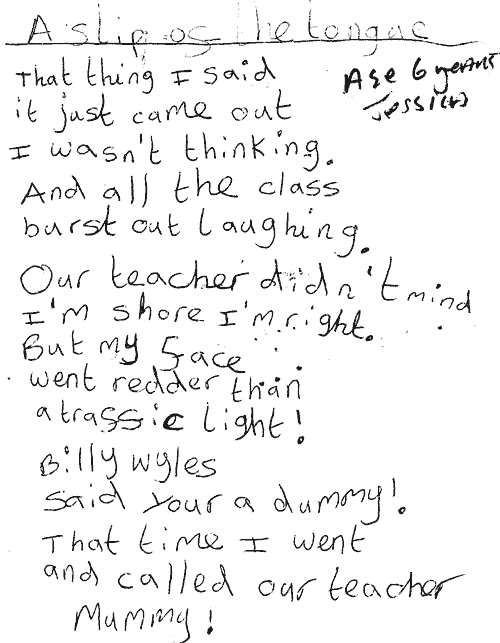 A slip of the tongue
That thing I said
Age 6 years
it just came out
Jessica
I wasn't thinking.
And all the class
burst out laughing.
Our teacher didn't mind
I'm shore I'm right.
But my face
went redder than
a traffic light!
Billy wyles
said your a dummy!.
That time I went
and called our teacher
Mummy!